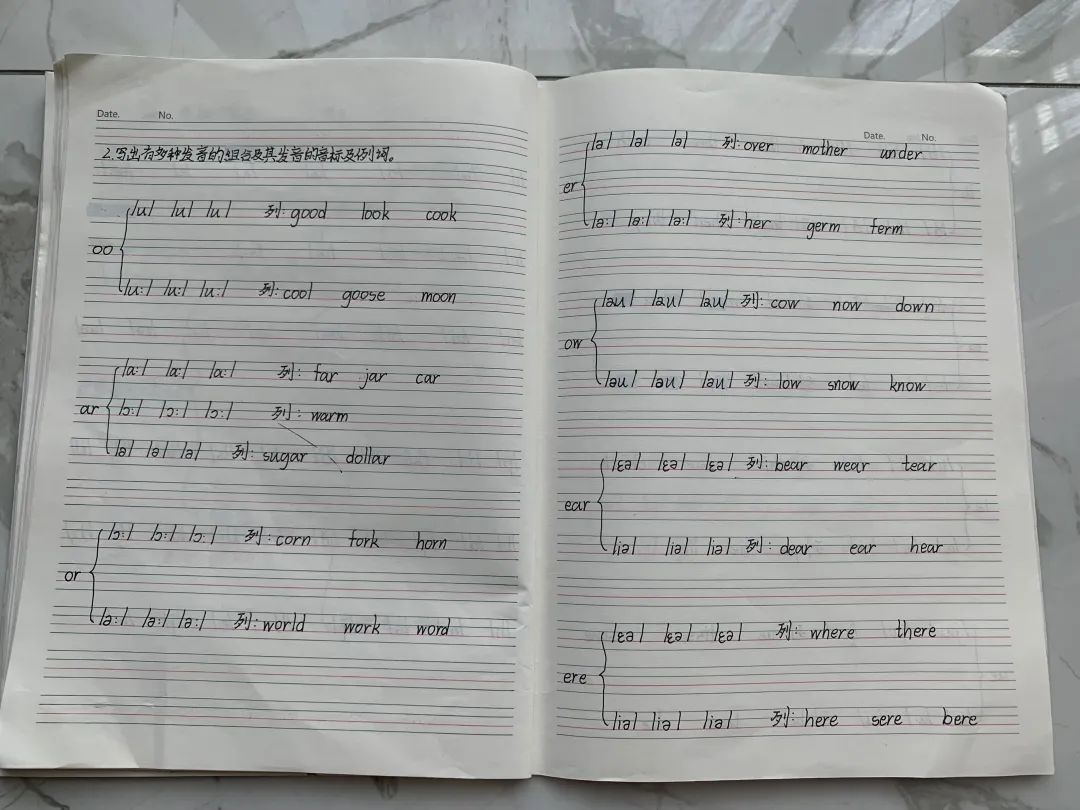 Date. No.
2.写出有多种发音的组合及其发音的音标及例词。
/u/ /u/ /u/ 列:good look cook
oo
/u:/ /u:/ /u:/ 列:cool goose moon
/ɑ:/ /ɑ:/ /ɑ:/ 列: far jar car
ar /ɔ:/ /ɔ:/ /ɔ:/ 列: warm
/ə/ /ə/ /ə/ 列: sugar dollar
/ɔ:/ /ɔ:/ /ɔ:/ 列:corn fork horn
or
/ə:/ /ə:/ /ə:/ 列:world work word
Date. No.
/ə/ /ə/ /ə/ 列:over mother under
er
/ə:/ /ə:/ /ə:/ 列:her germ ferm
/əu/ /əu/ /əu/ 列: cow now down
ow
/əu/ /əu/ /əu/ 列: low snow know
/ɛə/ /ɛə/ /ɛə/ 列:bear wear tear
ear
/iə/ /iə/ /iə/ 列: dear ear hear
/ɛə/ /ɛə/ /ɛə/ 列: where there
ere
/iə/ /iə/ /iə/ 列:here sere bere